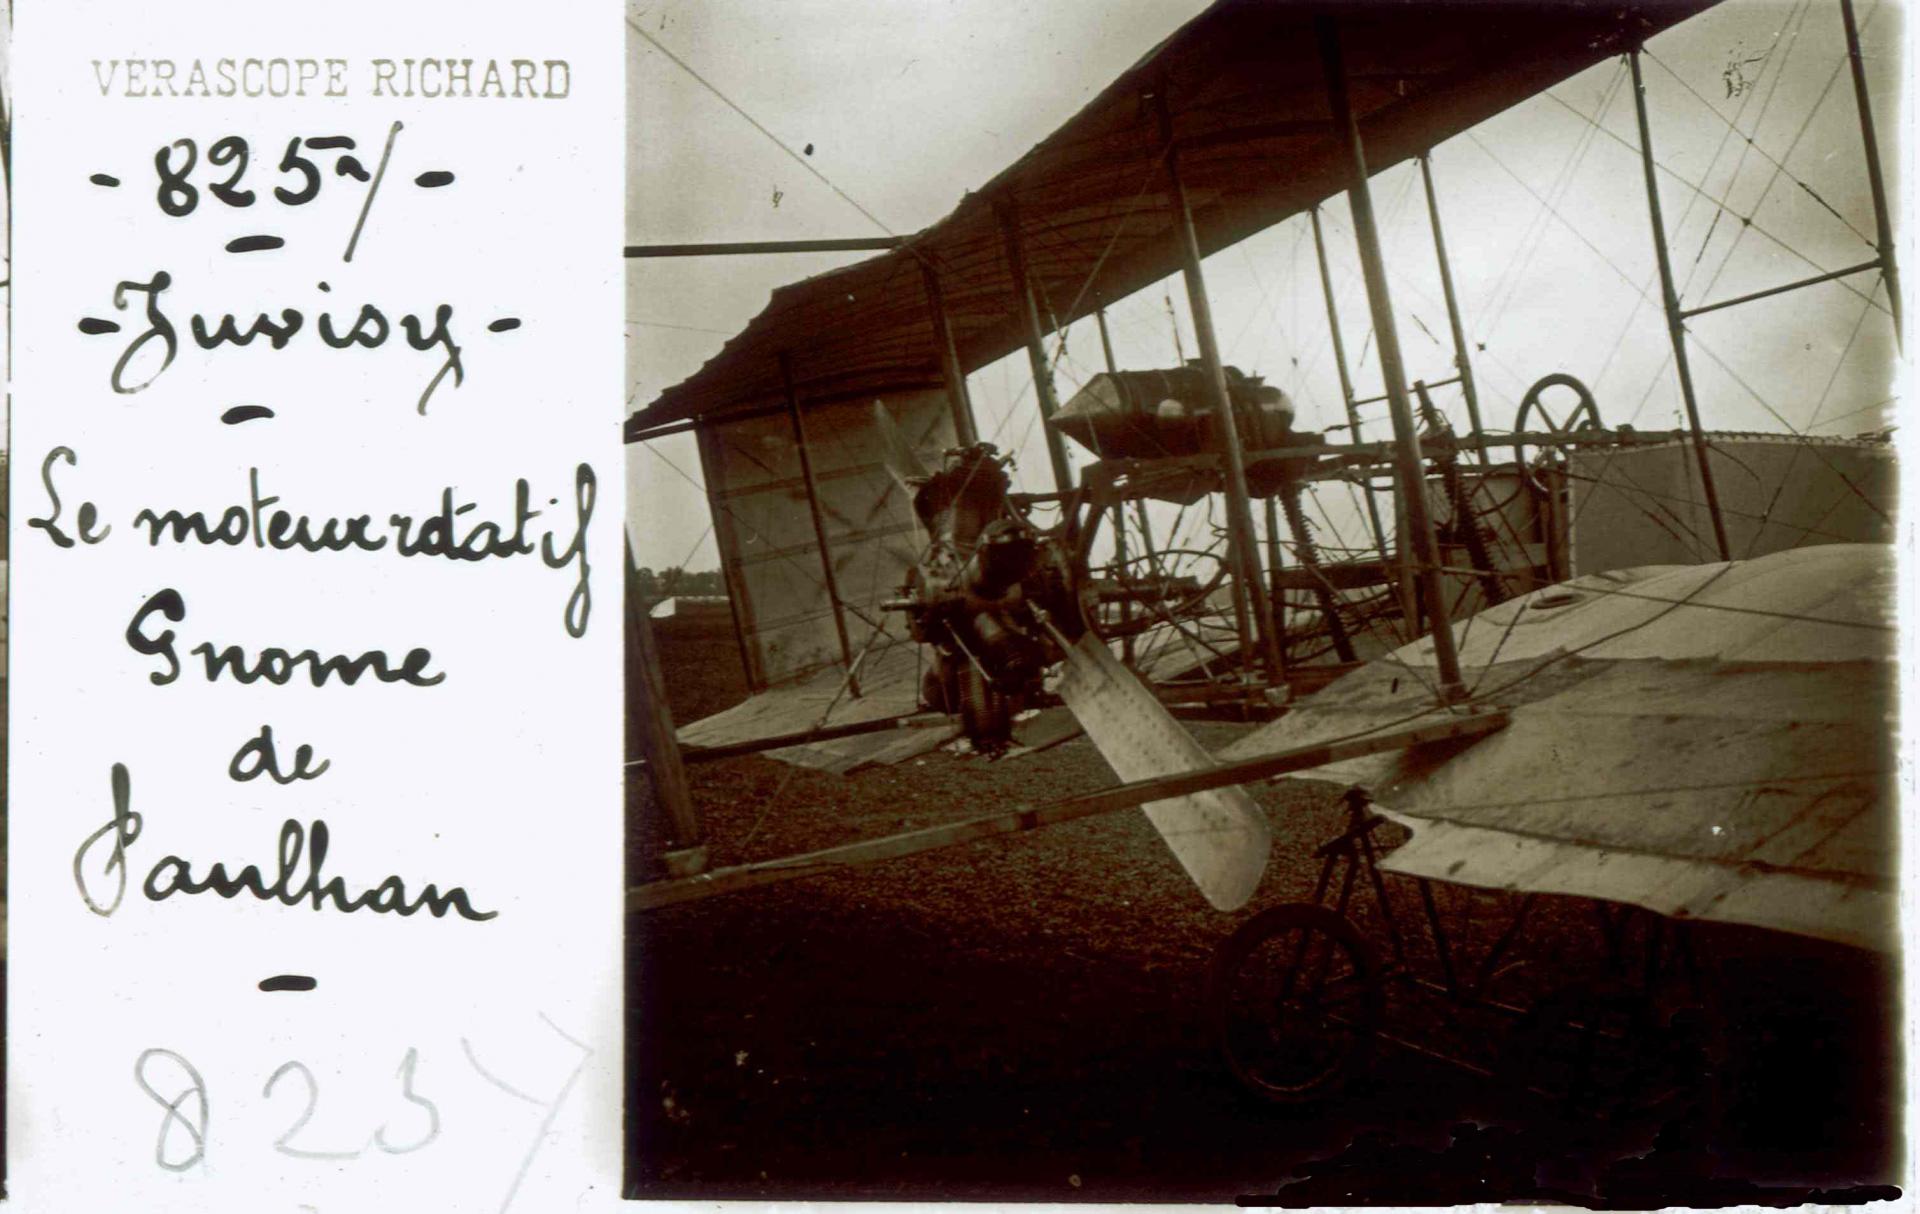 VERASCOPE RICHARD
- 825ᴬ/ -
- Juvisy -
Le moteur rotatif
Gnome
de
Paulhan
825Y